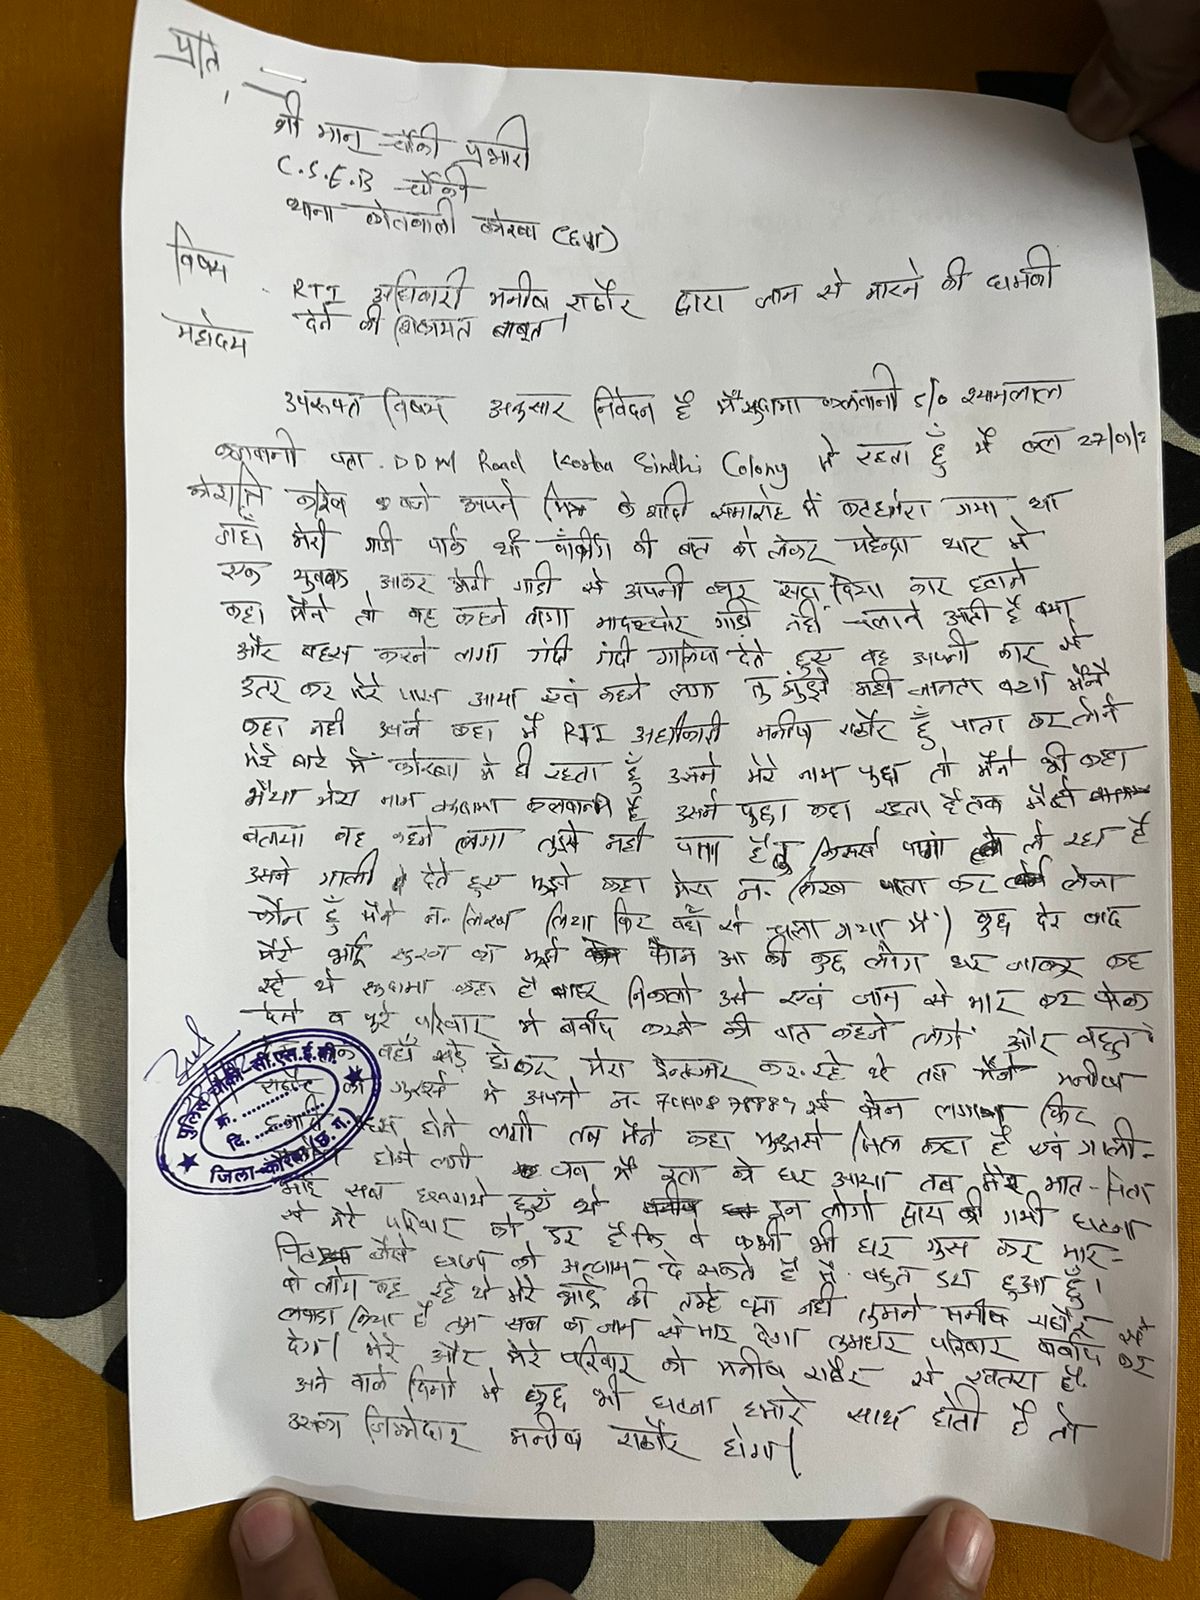 प्रति,
श्री मान् चौकी प्रभारी
C.S.E.B चौकी
थाना कोतवाली कोरबा (छग)
विषय . RTI अधिकारी मनीष राठौर द्वारा जान से मारने की धमकी
देने की शिकायत बाबत।
महोदय
उपरुक्त विषय अनुसार निवेदन है मैं सुदामा कलवानी S/o श्यामलाल
कलवानी पता. DDM Road Korba Sindhi Colony में रहता हूँ मैं कल 27/01/2
को रात्रि करिब बजे अपने मित्र के शादि समारोह में गया था
मेरी गाडी पार्क थी पार्किंग की बात को लेकर महेन्द्रा थार में
एक युवक आकर मेरी गाडी से अपनी कार सटा दिया कार हटाने
कहा मैने तो वह कहने लगा गाडी नही चलाने आती है क्या
और बहस करने लगा गंदी गंदी गालिया देते हुए वह अपनी कार से
उतर कर मेरे पास आया एवं कहने लगा तु मुझे नही जानता क्या मैने
कहा नही उसने कहा मैं RTI अधीकारी मनीष राठौर हूँ पाता कर लेने
मेरे बारे में कोरबा मे ही रहता हूँ उसने मेरे नाम पुछा तो मैने भी कहा
भैया मेरा नाम सुदामा कलवानी है उसने पुछा कहा रहता है तब मैने
बताया वह कहने लगा तुझे नही पता है तु किससे पंगा ले रहा है
उसने गाली देते हुए मुझे कहा मेरा न. लिख पाता कर लेना
कौन हूँ मैने न. लिख लिया फिर वहाँ से चला गया मैं। कुछ देर बाद
मेरे भाई का मुझे फोन आ की कुछ लोग घर जाकर कह
रहे थे सुदामा कहा है बाहर निकालो उसे एवं जान से मार कर फेक
देने व पुरे परिवार को बर्बाद करने की बात कहने लगे और बहुत
वहाँ खडे होकर मेरा इन्तजार कर रहे थे तब मैने मनीष
राठौर को गुस्से मे अपने न. से फोन लगाया फिर
होने लगी तब मैने कहा मुझसे मिल कहा है एवं गाली-
होने लगी जब मैं रात को घर आया तब मेरे मात-पिता
भाई सब घबराये हुए थे इन लोगो द्वारा की गयी घटना
से मेरे परिवार को डर है कि वे कभी भी घर घुस कर मार-
पिट जैसे घटना को अन्जाम दे सकते है मैं बहुत डरा हुआ हूँ।
वो लोग कह रहे थे मेरे भाई को तुम्हे पता नही तुमने मनीष राठौर से
लफडा किया है तुम सब को जान से मार देगा तुम्हारे परिवार बर्बाद कर
देगा। मेरे और मेरे परिवार को मनीष राठौर से खतरा है.
आने वाले दिनो मे कुछ भी घटना हमारे साथ होती है तो
उसका जिम्मेदार मनीष राठौर होगा।
पुलिस चौकी-सी.एस.ई.बी.
क्र. ............
दि. ............
जिला-कोरबा (छ.ग.)